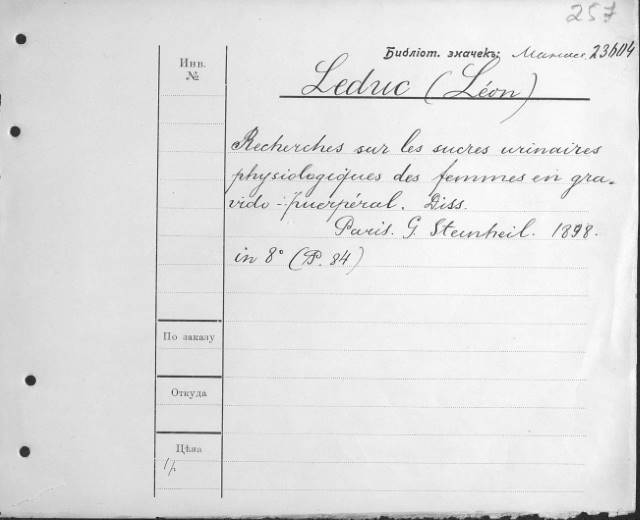 257
Библіот. значекъ: 23604
Инв.
№
Leduc (Léon)
Recherches sur les sucres urinaires
physiologiques des femmes en gra-
vido-puerpéral. Diss.
Paris. G. Steinheil. 1898.
in 8° (P. 84)
По заказу
Откуда
Цѣна
1 р